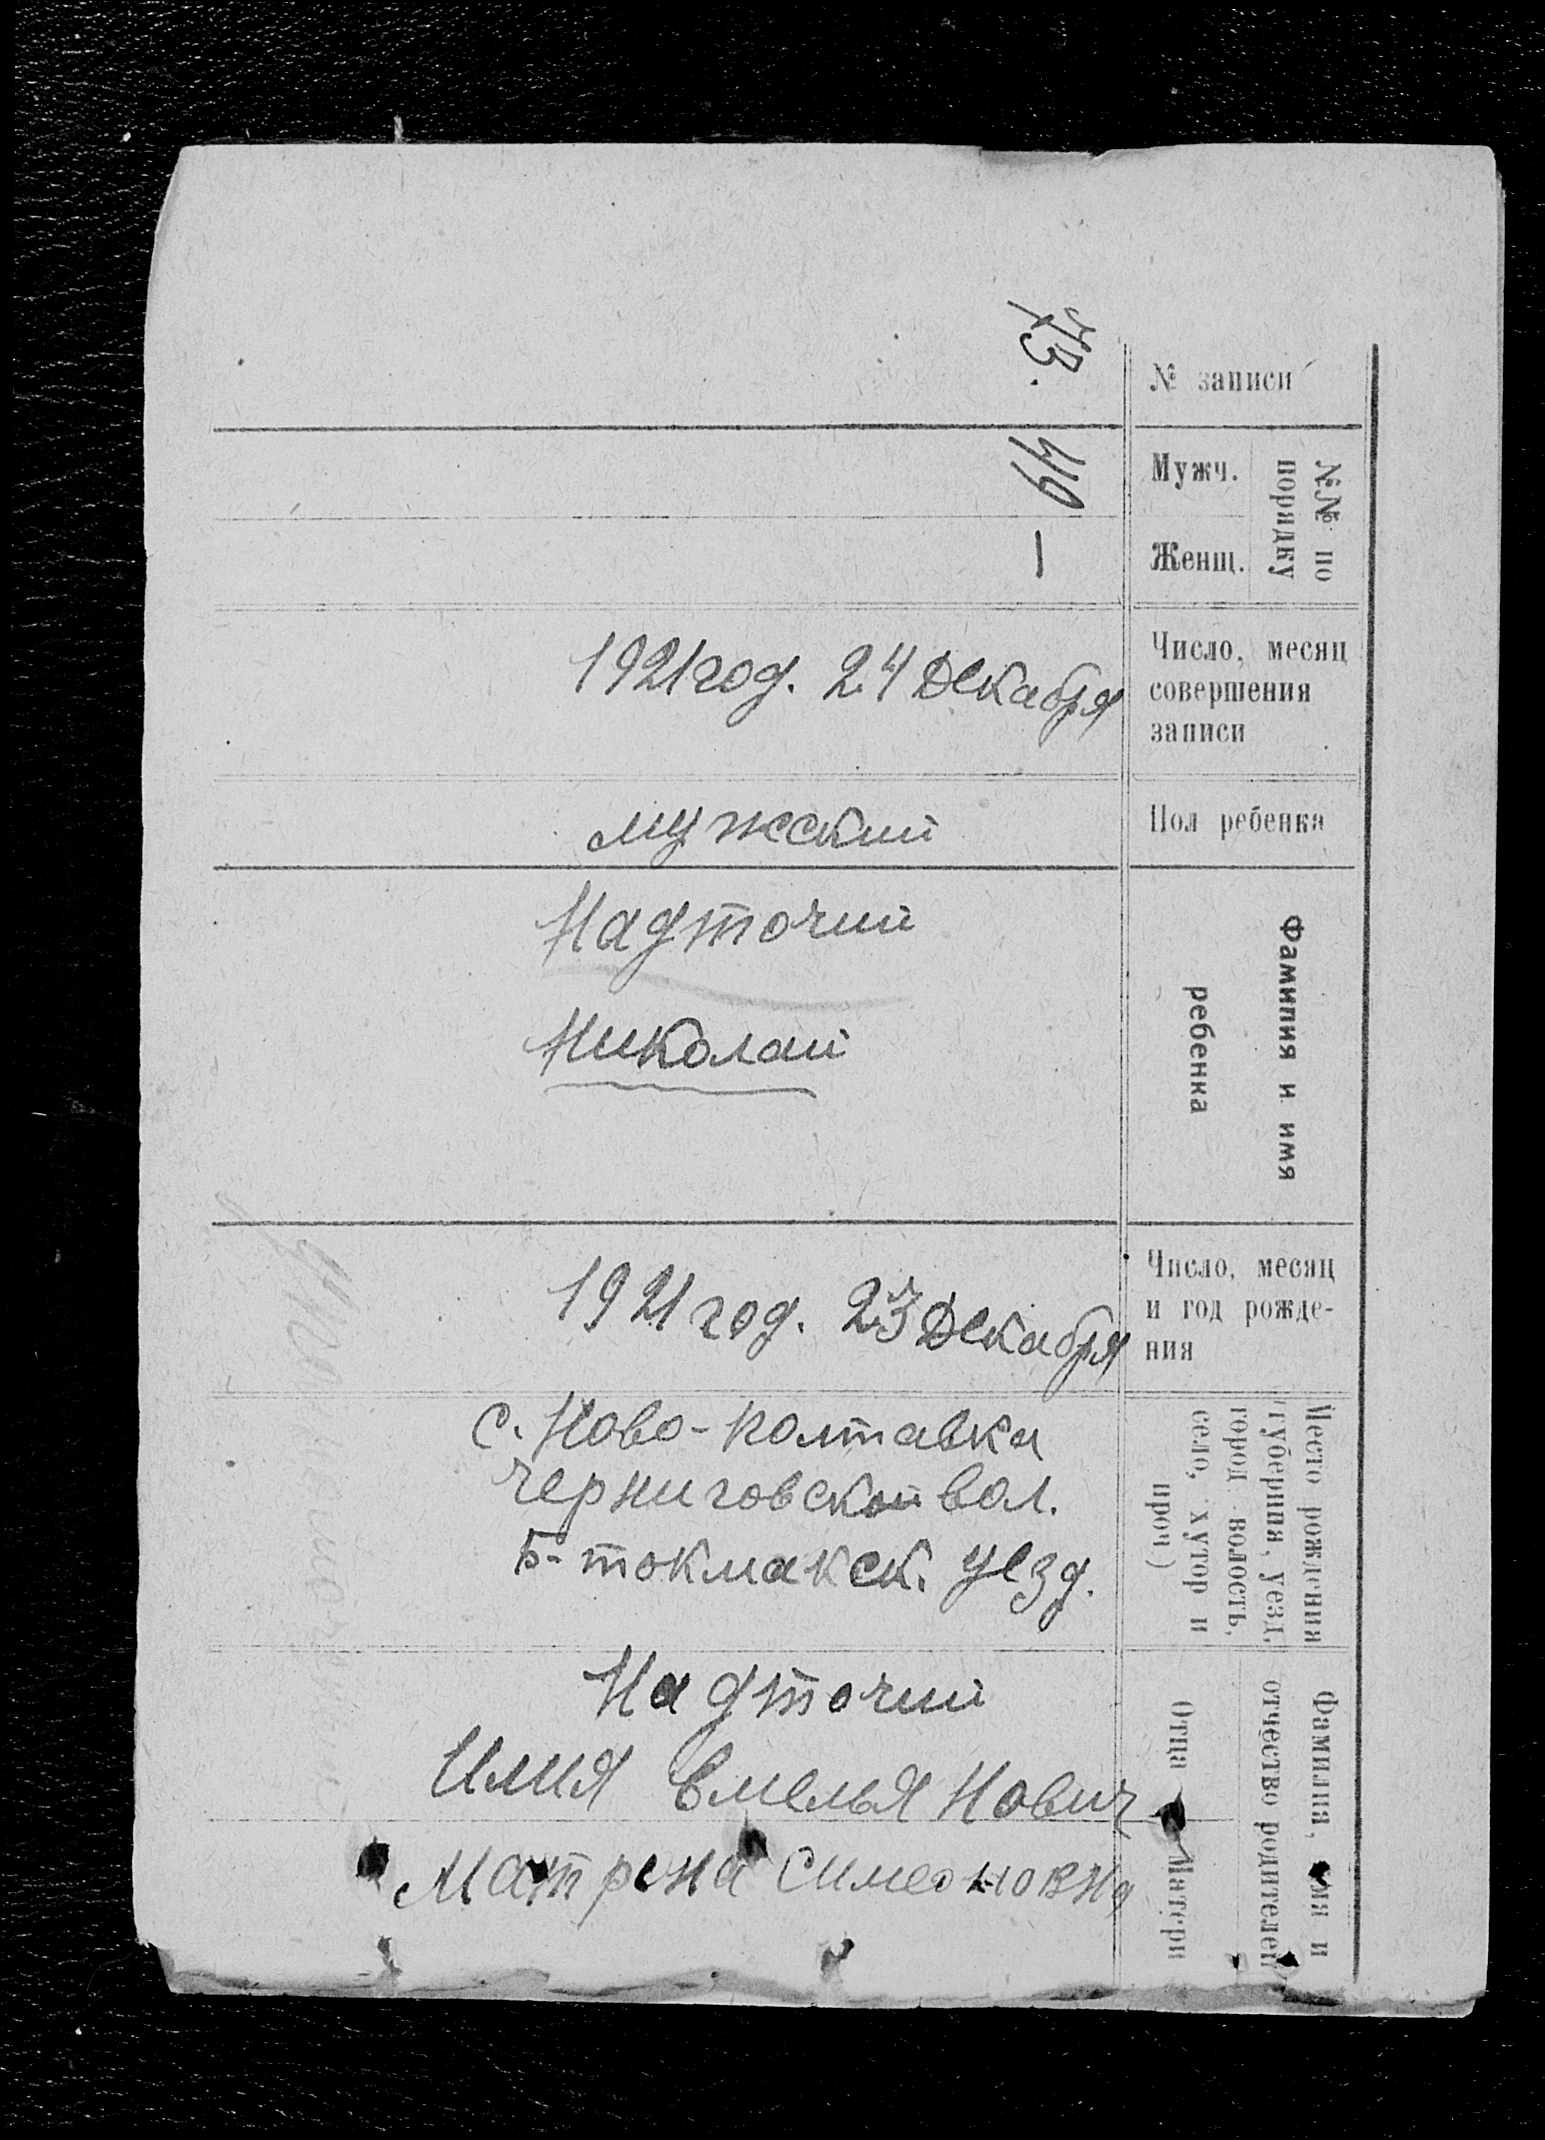 № записи
73.
№№ по
порядку
Мужч.
49
Женщ.
—
Число, месяц
совершения
записи
1921 год. 24 Декабря
Пол ребенка
мужской
Фамилия и имя
ребенка
Надточий
Николай
Число, месяц
и год рожде-
ния
1921 год. 23 Декабря
Место рождения
(губерния, уезд,
город волость,
село, хутор и
проч)
с. Ново-Полтавка
Черниговской вол.
Б-токмакск. уезд.
Фамилия, имя и
отчество родителей
Отца
Надточий
Илия Емельянович
Матери
Матрена Симеоновна